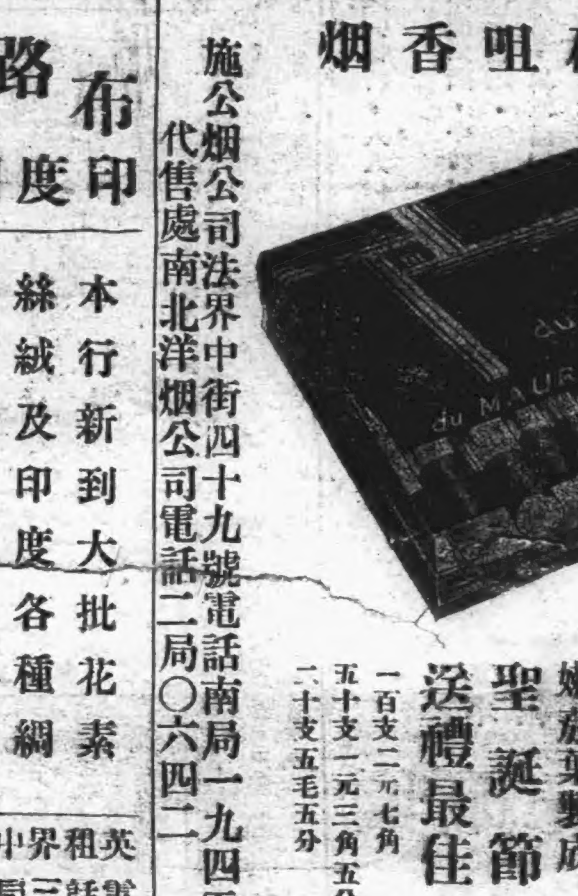 咀香烟
du MAUR
聖誕節
送禮最佳
一百支二元七角
五十支一元三角五分
二十支五毛五分
施公烟公司法界中街四十九號電話南局一九四
代售處南北洋烟公司電話二局〇六四二
布
路
印度
本行新到大批花素
絲絨及印度各種綢
英租界中